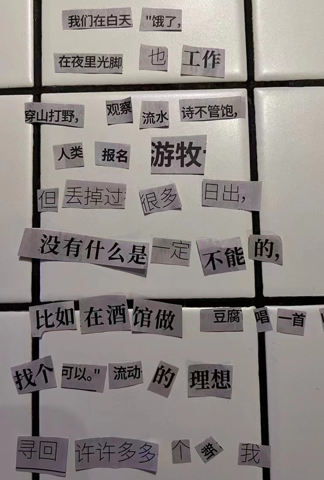 我们在白天 "饿了,
在夜里光脚 也 工作
穿山打野, 观察 流水 诗不管饱,
人类 报名 游牧
但 丢掉过 很多 日出,
没有什么是 一定 不能 的,
比如 在酒 馆做 豆腐 唱 一首
找个 可以。" 流动 的 理想
寻回 许许多多 个 新 我